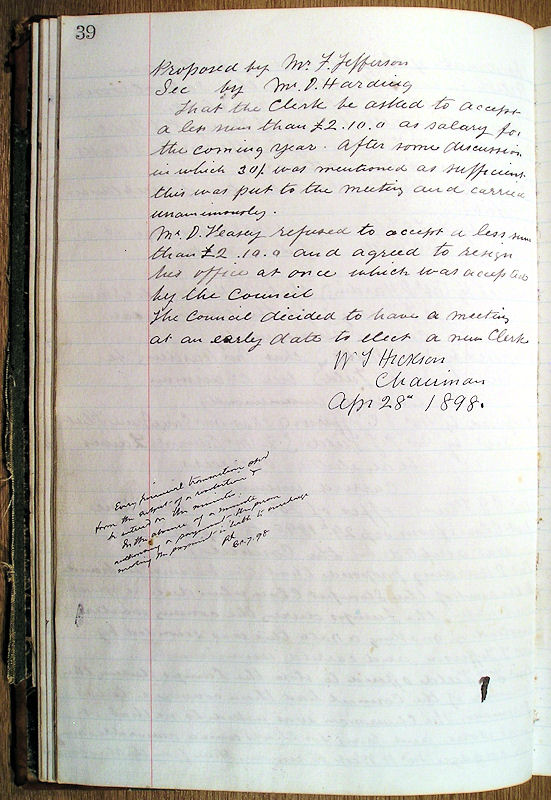 39
Proposed by Mr F. Jefferson
Sec by Mr. D. Harding
That the Clerk be asked to accept
a less sum than £2.10.0 as salary for
the coming year. After some discussion
in which 30/ was mentioned as sufficient
this was put to the meeting and carried
unanimously.
Mr. D. Heasey refused to accept a less sum
than £2.10.0 and agreed to resign
his office at once which was accepted
by the Council
The Council decided to have a meeting
at an early date to elect a new Clerk
W J Hickson
Chairman
Apr 28th 1898.
Every financial transaction
from the of a resolution &
be entered in the minutes.
In the absence of a minute
authorising a payment the person
making the payment is liable to surcharge